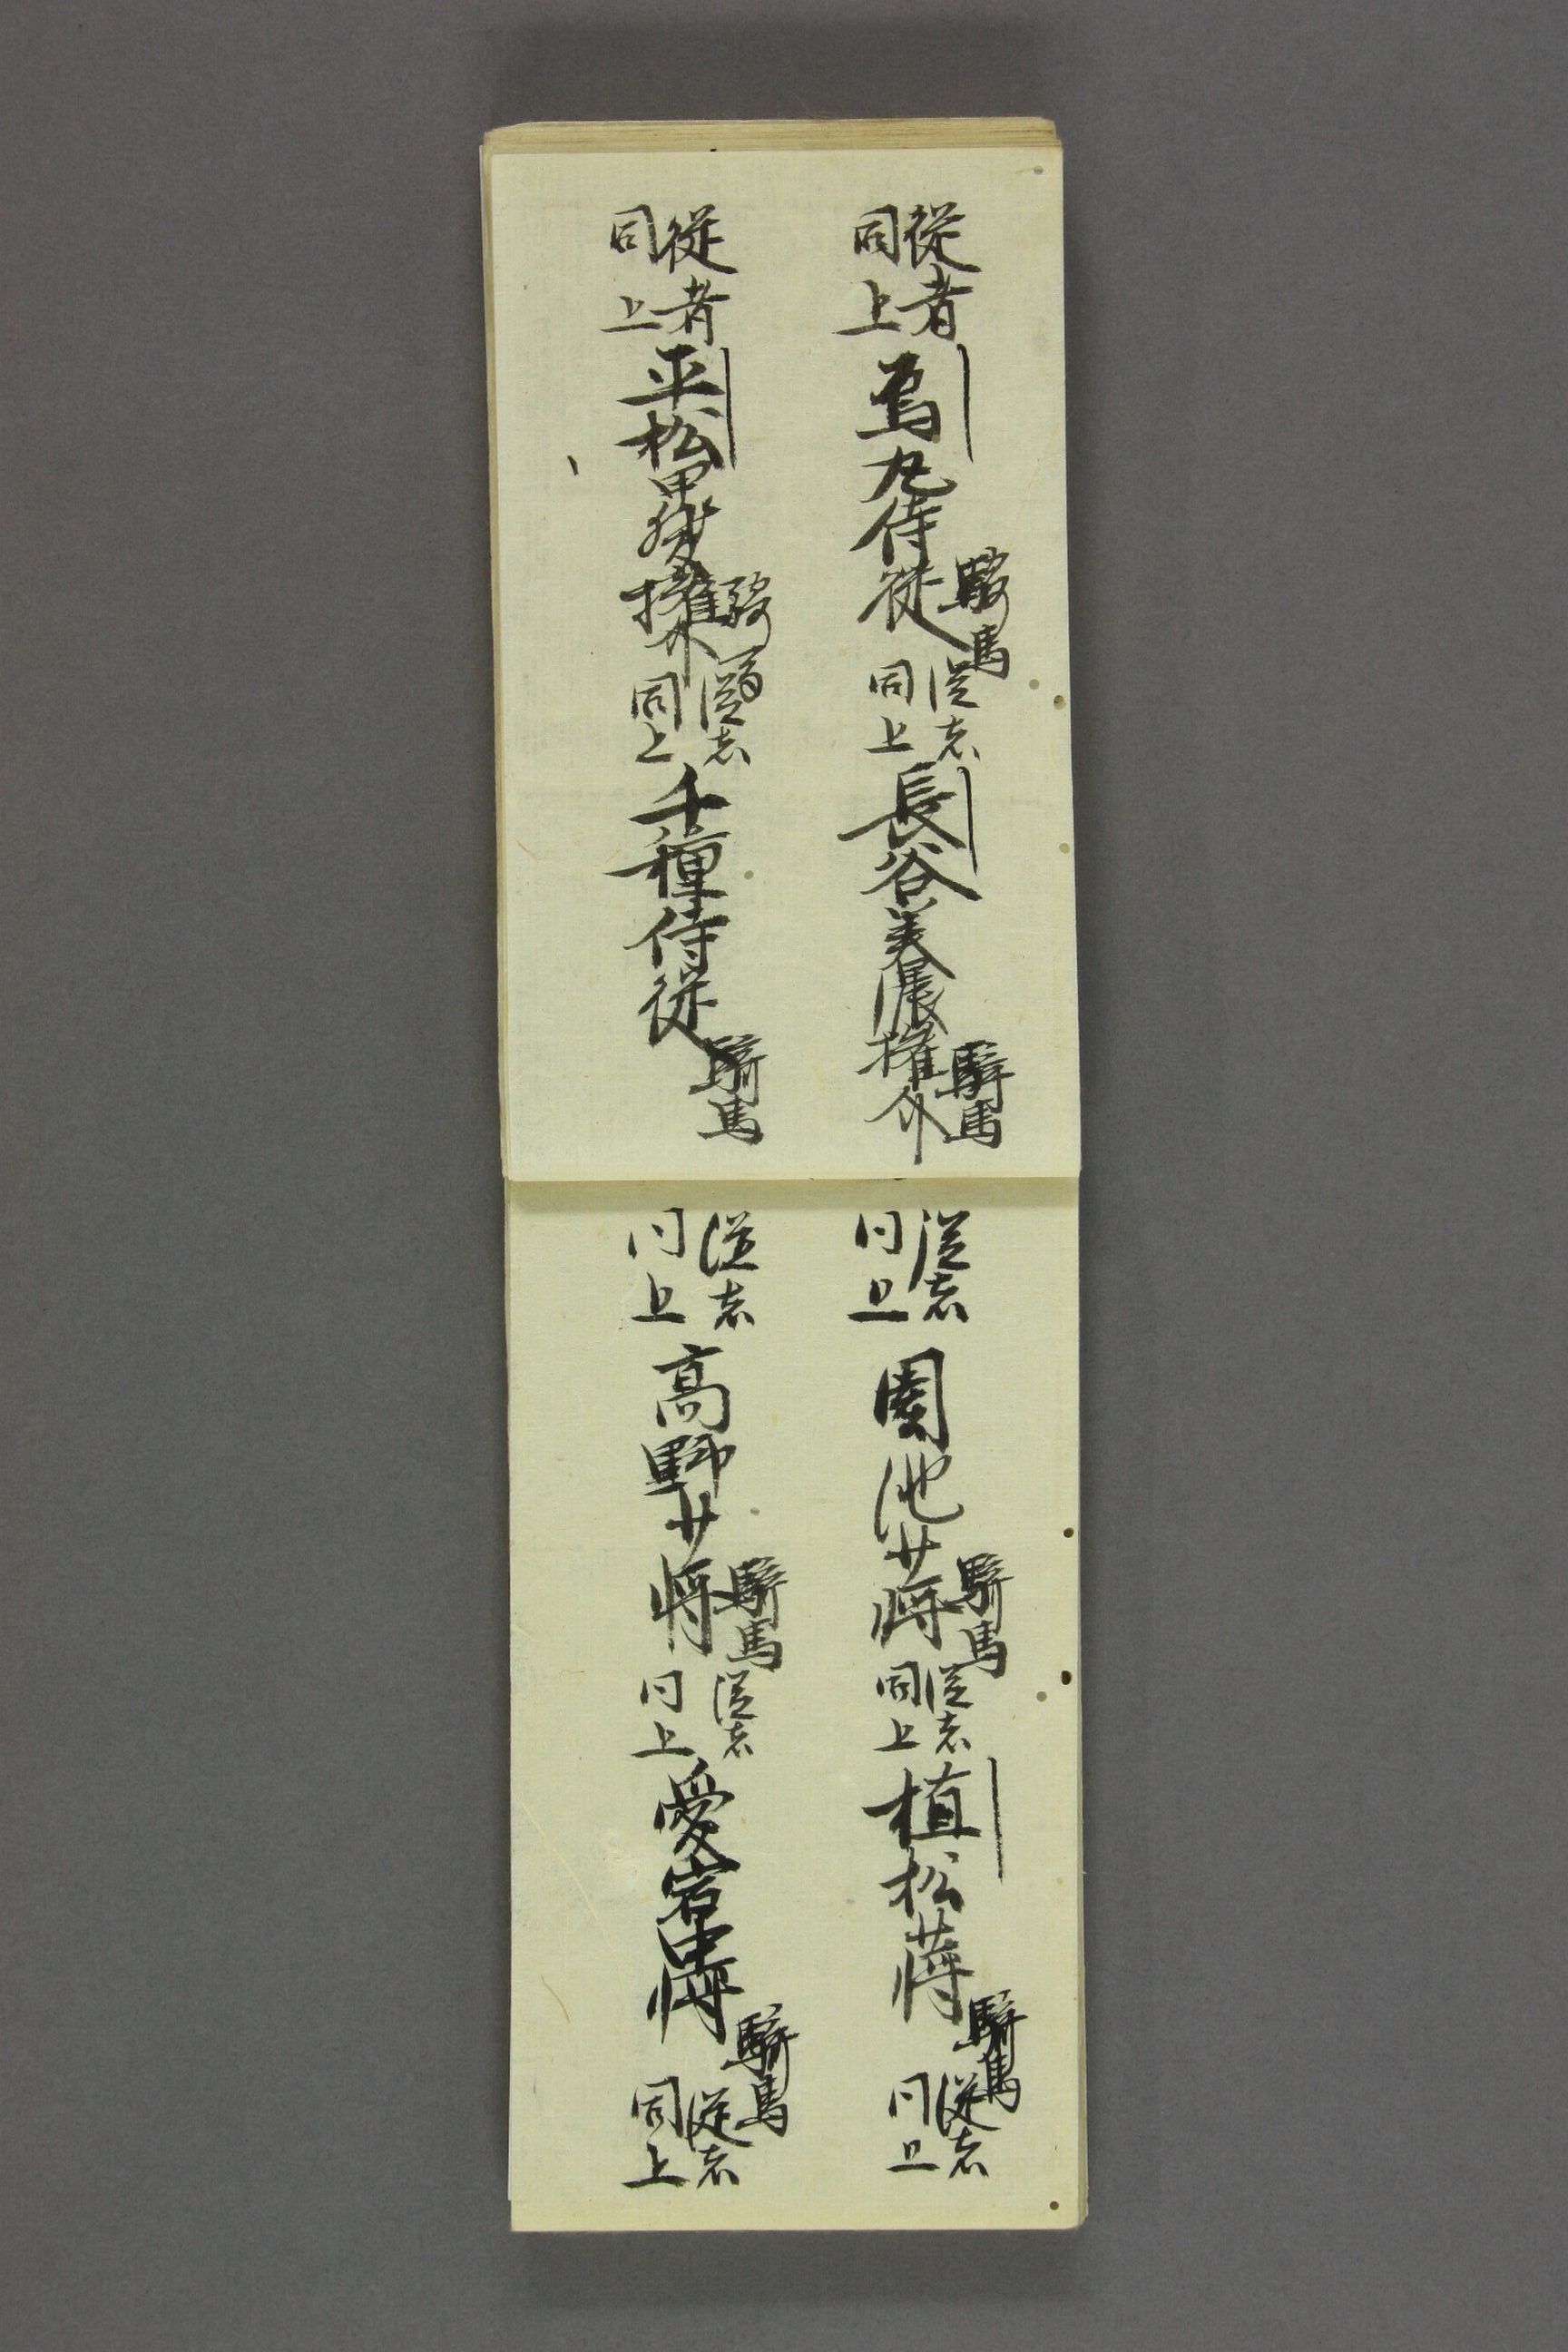 従者
同上
烏丸侍従
騎馬
従者
同上
長谷美濃権介
騎馬
従者
同上
平松甲斐権介
騎馬
従者
同上
千種侍従
騎馬
従者
同上
園池少将
騎馬
従者
同上
植松少将
騎馬
従者
同上
従者
同上
高野少将
騎馬
従者
同上
愛宕中将
騎馬
従者
同上